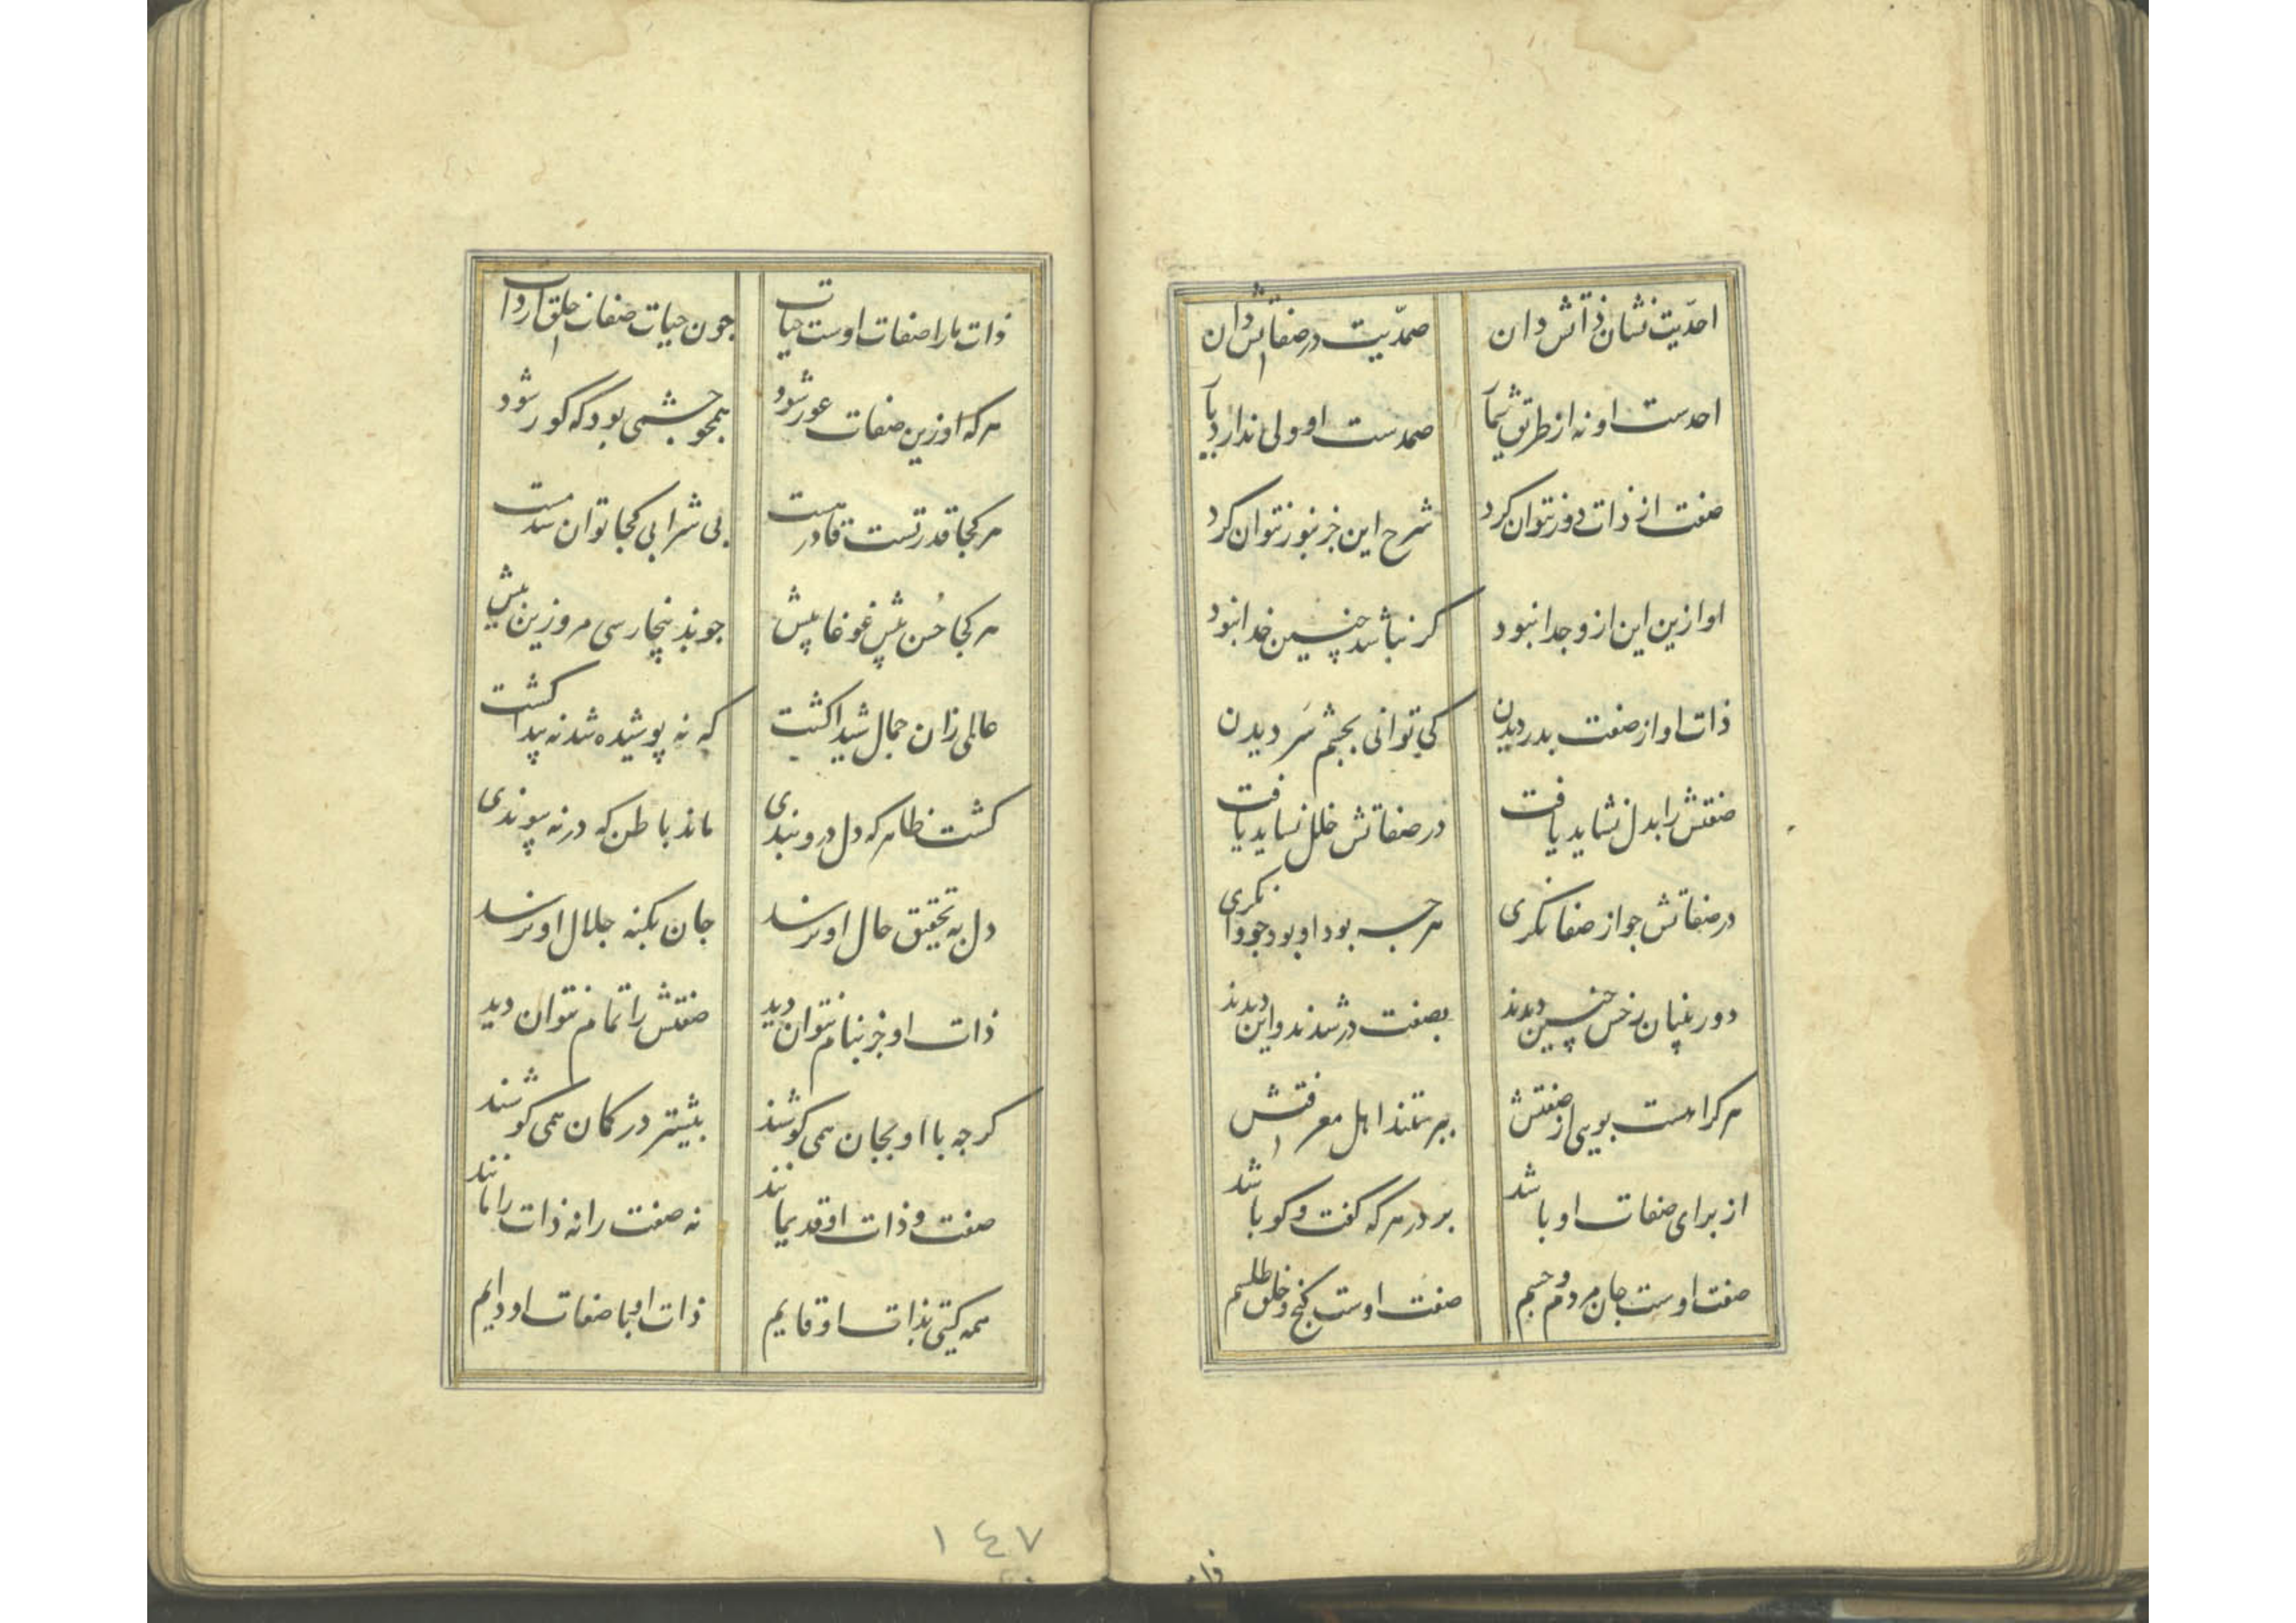 احدّیت نشان ذاتش دان صمدّیت در صفاتش دان
احدست او نه از طریق شمار صمدست او ولی ندارد یار
صفت از ذات دور نتوان کرد شرح این جز بنور نتوان کرد
او ازین این ازو جدا نبود کر نباشد چنین خدا نبود
ذات او از صفت بدر دیدن کی توانی بچشم سَر دیدن
صفتش را بدل نشاید یافت در صفاتش خلل نشاید یافت
در صفاتش جو از صفا نکری هرجه بود او بود جو وا نکری
دوربینان رخش چنین دیدند بصفت در شدند و این دیدند
هرکرا هست بویی از صفتش بپرستند اهل معرفتش
از برای صفات او باشد بر در هرکه گفت و کو باشد
صفت اوست جان مردم و جسم صفت اوست کنج و خلق طلسم
ذات ما را صفات اوست حیات جون حیات صفات خلق از ذات
هرکه او زین صفات عور شود همجو جشمی بود که کور شود
هرکجا قدرتست قادر هست بی شرابی کجا توان شد مست
هرکجا حُسن بیش غوغا بیش جون بدینجا رسی مرو زین پیش
عالمی زان جمال شیدا کشت که نه پوشیده شد نه پیدا کشت
کشت ظاهر که دل درو بندی ماند باطن که در نه پیوندی
دل به تحقیق حال او نرسد جان بکنه جلال او نرسد
ذات او جز بنام نتوان دید صفتش را تمام نتوان دید
کرجه با او بجان همی کوشند بیشتر در کمان همی کوشند
صفت و ذات او قدیمانند نه صفت را نه ذات را مانند
همه کیتی بذات او قایم ذات او با صفات او دایم
١٤٧